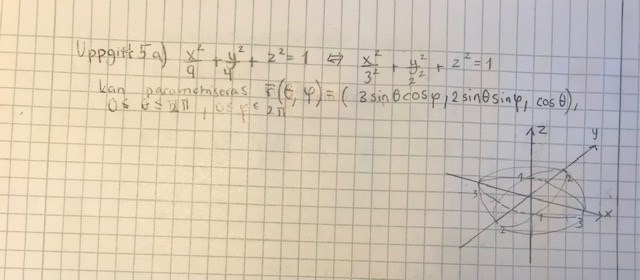 Uppgift 5 a) x²/9 + y²/4 + z² = 1 ⇔ x²/3² + y²/2² + z² = 1
kan parametriseras r̄(θ, φ) = (3 sinθ cosφ, 2 sinθ sinφ, cosθ),
0 ≤ θ ≤ 2π, 0 ≤ φ ≤ 2π
z
y
1 2
3
x
1
2 3